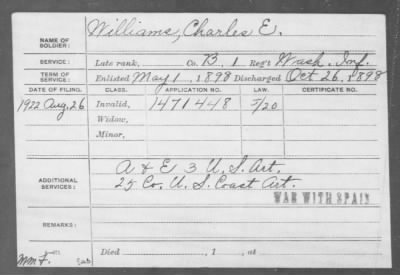 NAME OF SOLDIER: Williams, Charles E.
SERVICE: Late rank, Co. B, 1 Reg't Wash. Inf.
TERM OF SERVICE: Enlisted May 1, 1898 Discharged Oct 26, 1898
DATE OF FILING. CLASS. APPLICATION NO. LAW. CERTIFICATE NO.
1922 Aug. 26 Invalid, 1471448 5/20
Widow,
Minor,
ADDITIONAL SERVICES: A & E 3 U.S. Art.
25 Co. U.S. Coast Art.
WAR WITH SPAIN
REMARKS:
Died , 1 , at